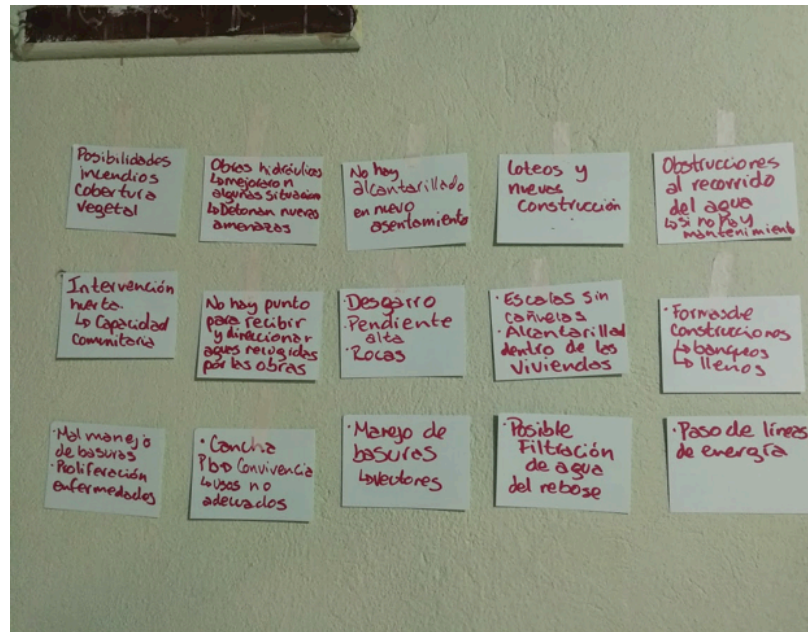 Posibilidades
incendios
Cobertura
vegetal
Obras hidráulicas
↳ mejoraron
algunas situación
↳ Detonan nuevas
amenazas
No hay
alcantarillado
en nuevo
asentamiento
Loteos y
nuevas
construcción
Obstrucciones
al recorrido
del agua
↳ si no hay
mantenimiento
· Intervención
huerta.
↳ Capacidad
Comunitaria
No hay punto
para recibir
y direccionar
aguas recogidas
por las obras
· Desgarro
· Pendiente
alta
· Rocas
· Escalas sin
cañuelas
· Alcantarillad
dentro de las
viviendas
· Formas de
construcciones
↳ banqueos
↳ llenos
· Mal manejo
de basuras
· Proliferación
enfermedades
· Cancha
Pb → Convivencia
↳ usos no
adecuados
· Manejo de
basuras
↳ vectores
· Posible
Filtración
de agua
del rebose
· Paso de líneas
de energía